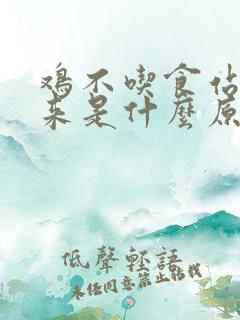 鸡不喫食站
来是什麼原
低聲輕語
未经同意禁止转载